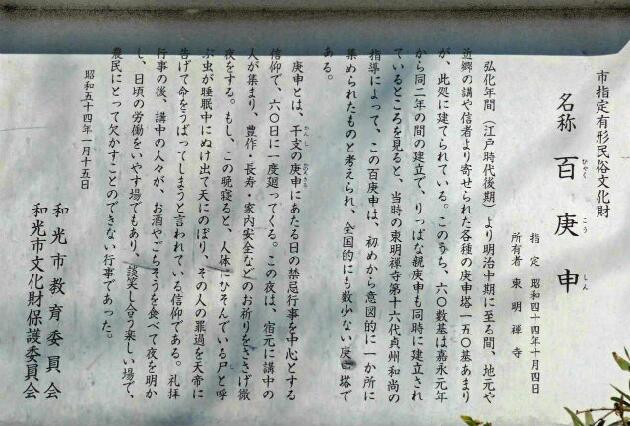 市指定有形民俗文化財
名称 百庚申
ひやく こう しん
指定 昭和四十四年十月四日
所有者 東明禅寺
弘化年間(江戸時代後期)より明治中期に至る間、地元や
近郷の講や信者より寄せられた各種の庚申塔一五〇基あまり
が、此処に建てられている。このうち、六〇数基は嘉永元年
から同二年の間の建立で、りっぱな親庚申も同時に建立され
ているところを見ると、当時の東明禅寺第十六代貞州和尚の
指導によって、この百庚申は、初めから意図的に一か所に
集められたものと考えられ、全国的にも数少ない庚申塔で
ある。
庚申とは、干支の庚申にあたる日の禁忌行事を中心とする
かんし かのえさる
信仰で、六〇日に一度廻ってくる。この夜は、宿元に講中の
人が集まり、豊作・長寿・家内安全などのお祈りをささげ徹
夜をする。もし、この晩寝ると、人体にひそんでいる尸と呼
ぶ虫が睡眠中にぬけ出て天にのぼり、その人の罪過を天帝に
告げて命をうばってしまうと言われている信仰である。礼拝
行事の後、講中の人々が、お酒やごちそうを食べて夜を明か
し、日頃の労働をいやす場でもあり、談笑し合う楽しい場で、
農民にとって欠かすことのできない行事であった。
昭和五十四年一月十五日
和光市教育委員会
和光市文化財保護委員会